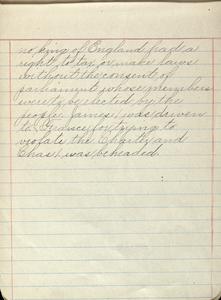 no king of England had a
right to tax or make laws
without the consent of
parliament whose members
were to be elected by the
people. James, was driven
to France for trying to
violate the Charter and
Chas I was beheaded.